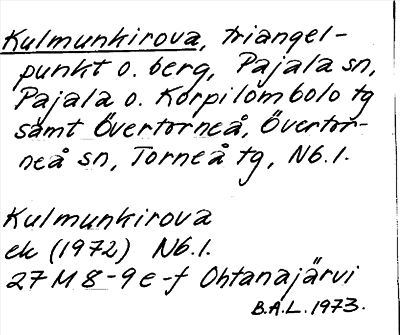 Kulmunkirova, triangel-
punkt o. berg, Pajala sn,
Pajala o. Korpilombolo tg
samt Övertorneå, Övertor-
neå sn, Torneå tg, Nb.l.
Kulmunkirova
ek (1972) Nb.l.
27 M 8-9 e-f Ohtanajärvi
B.A.L. 1973.